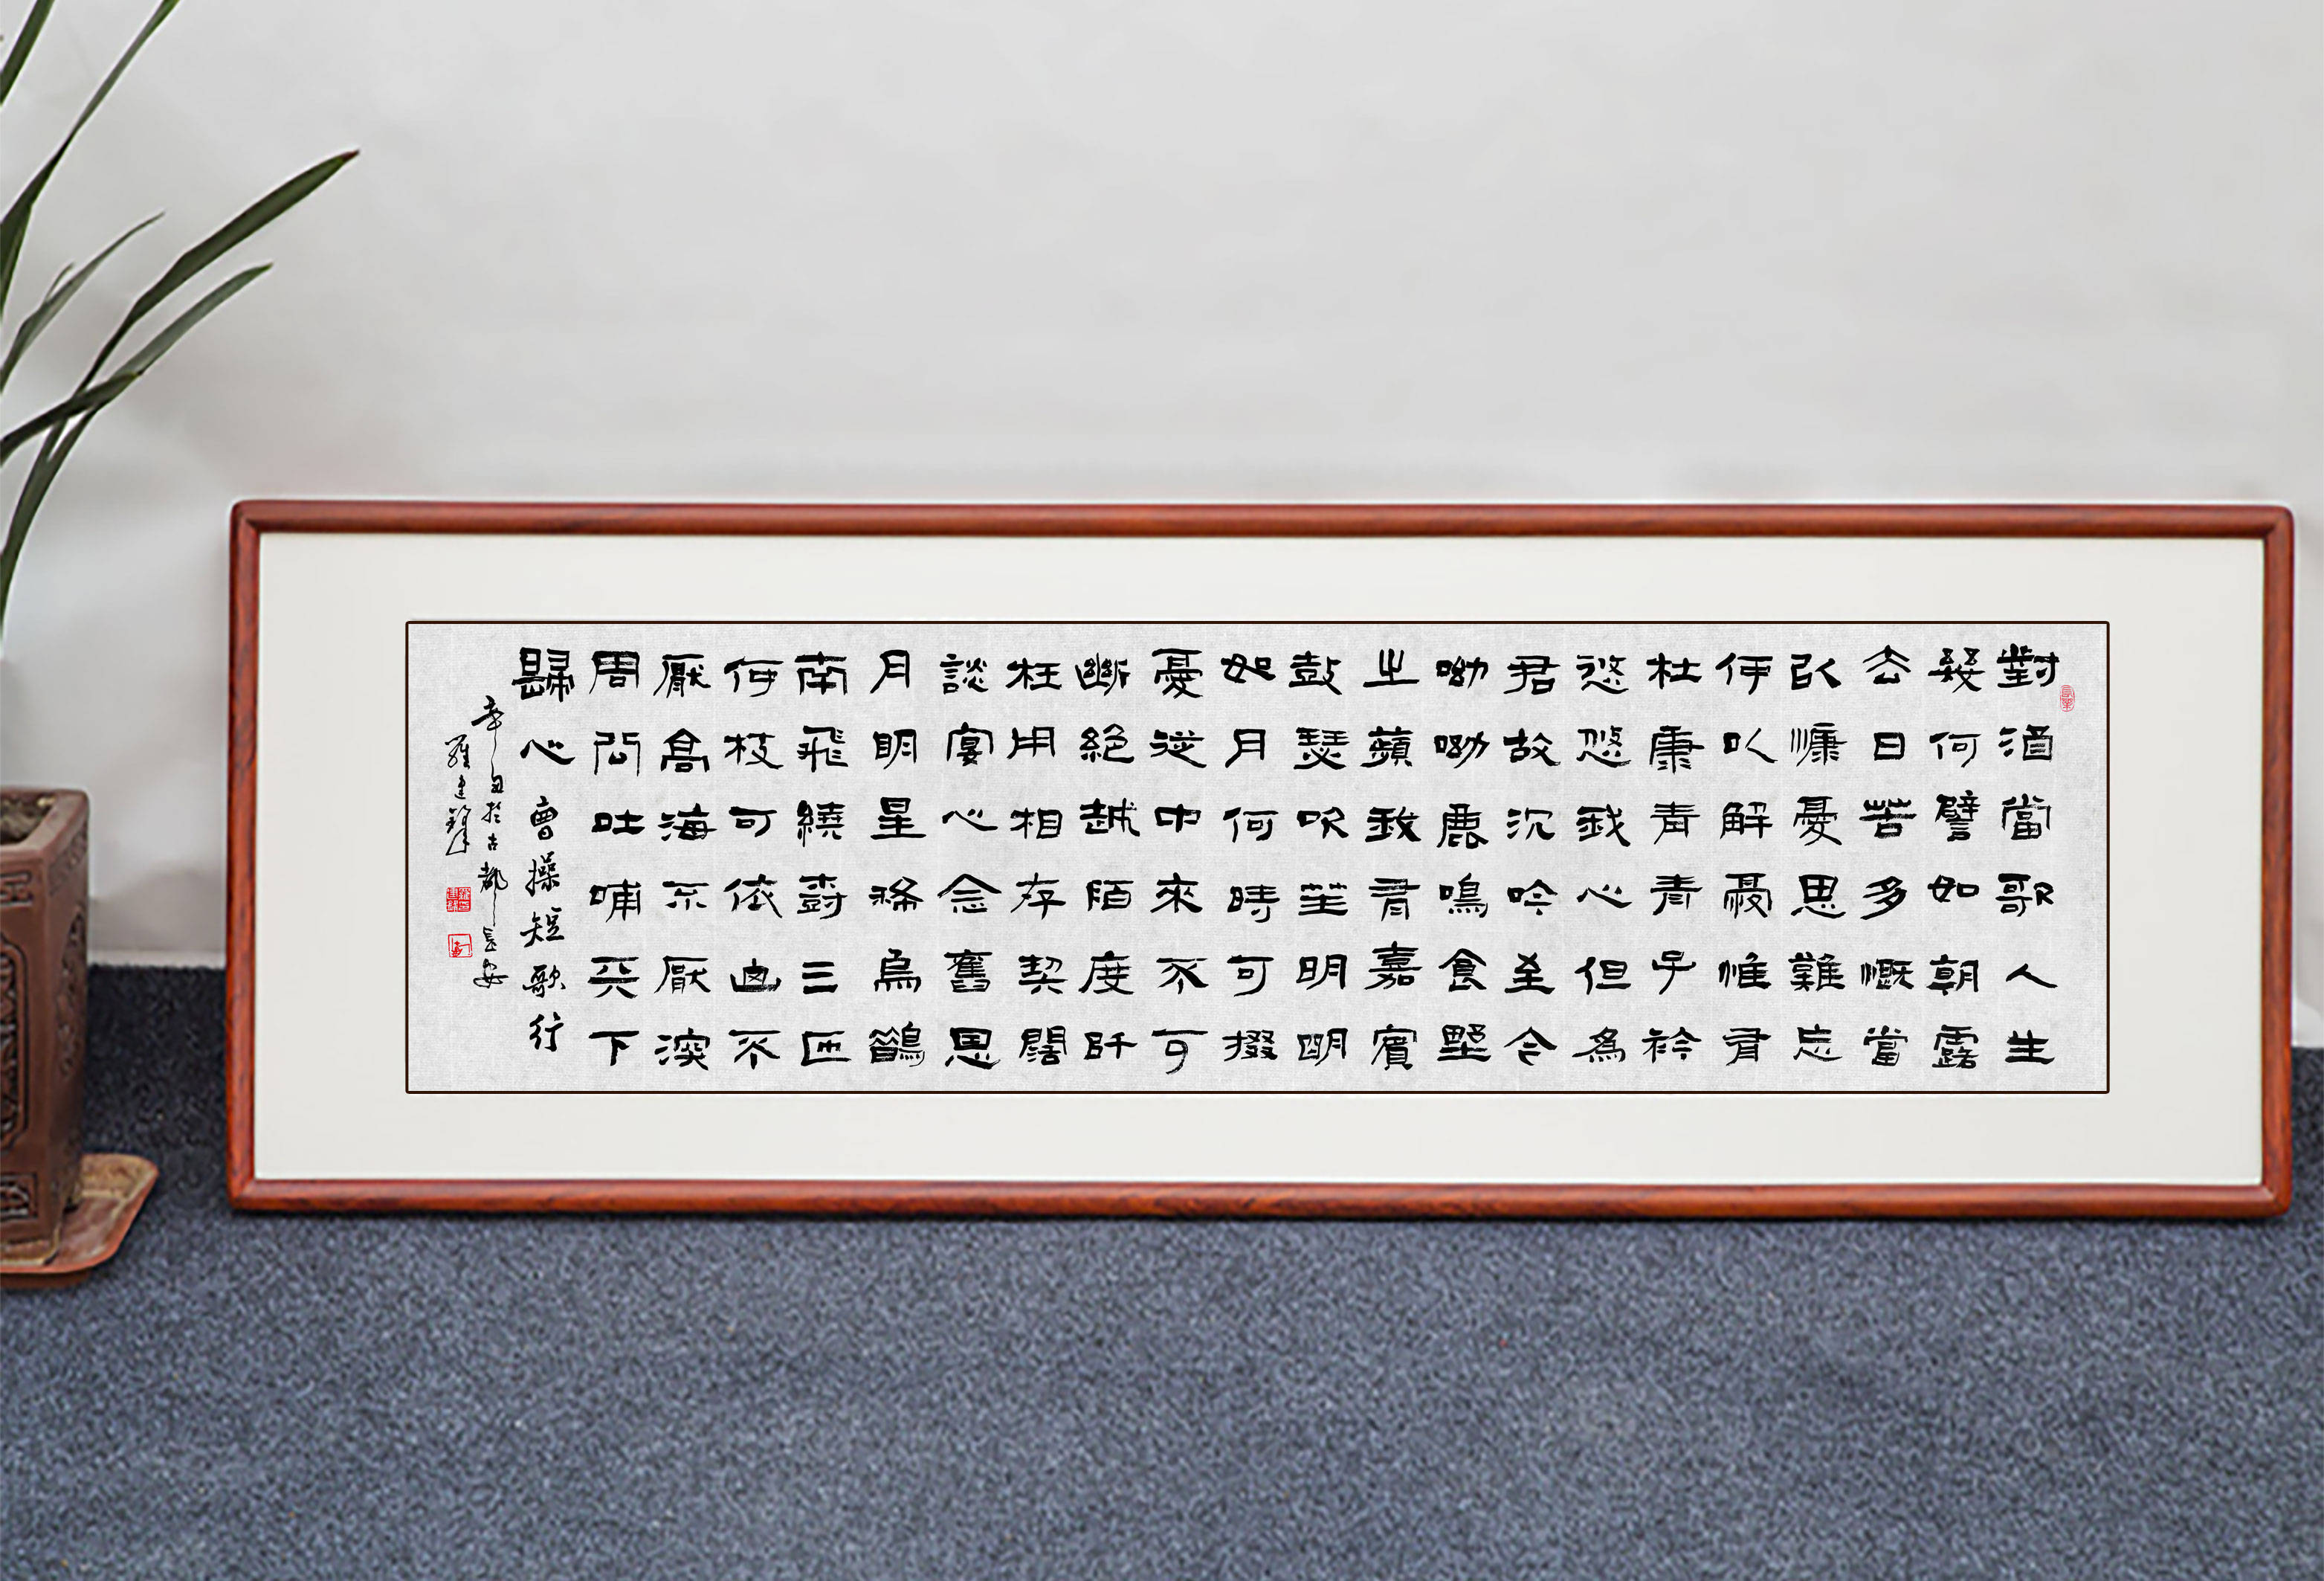 對酒當歌人生
幾何譬如朝露
去日苦多慨當
以慷憂思難忘
何以解憂惟有
杜康青青子衿
悠悠我心但為
君故沉吟至今
呦呦鹿鳴食野
之蘋我有嘉賓
鼓瑟吹笙明明
如月何時可掇
憂從中來不可
斷絕越陌度阡
枉用相存契闊
談宴心念舊恩
月明星稀烏鵲
南飛繞樹三匝
何枝可依山不
厭高海不厭深
周公吐哺天下
歸心 曹操短歌行
辛丑於古都長安
羅建鋒